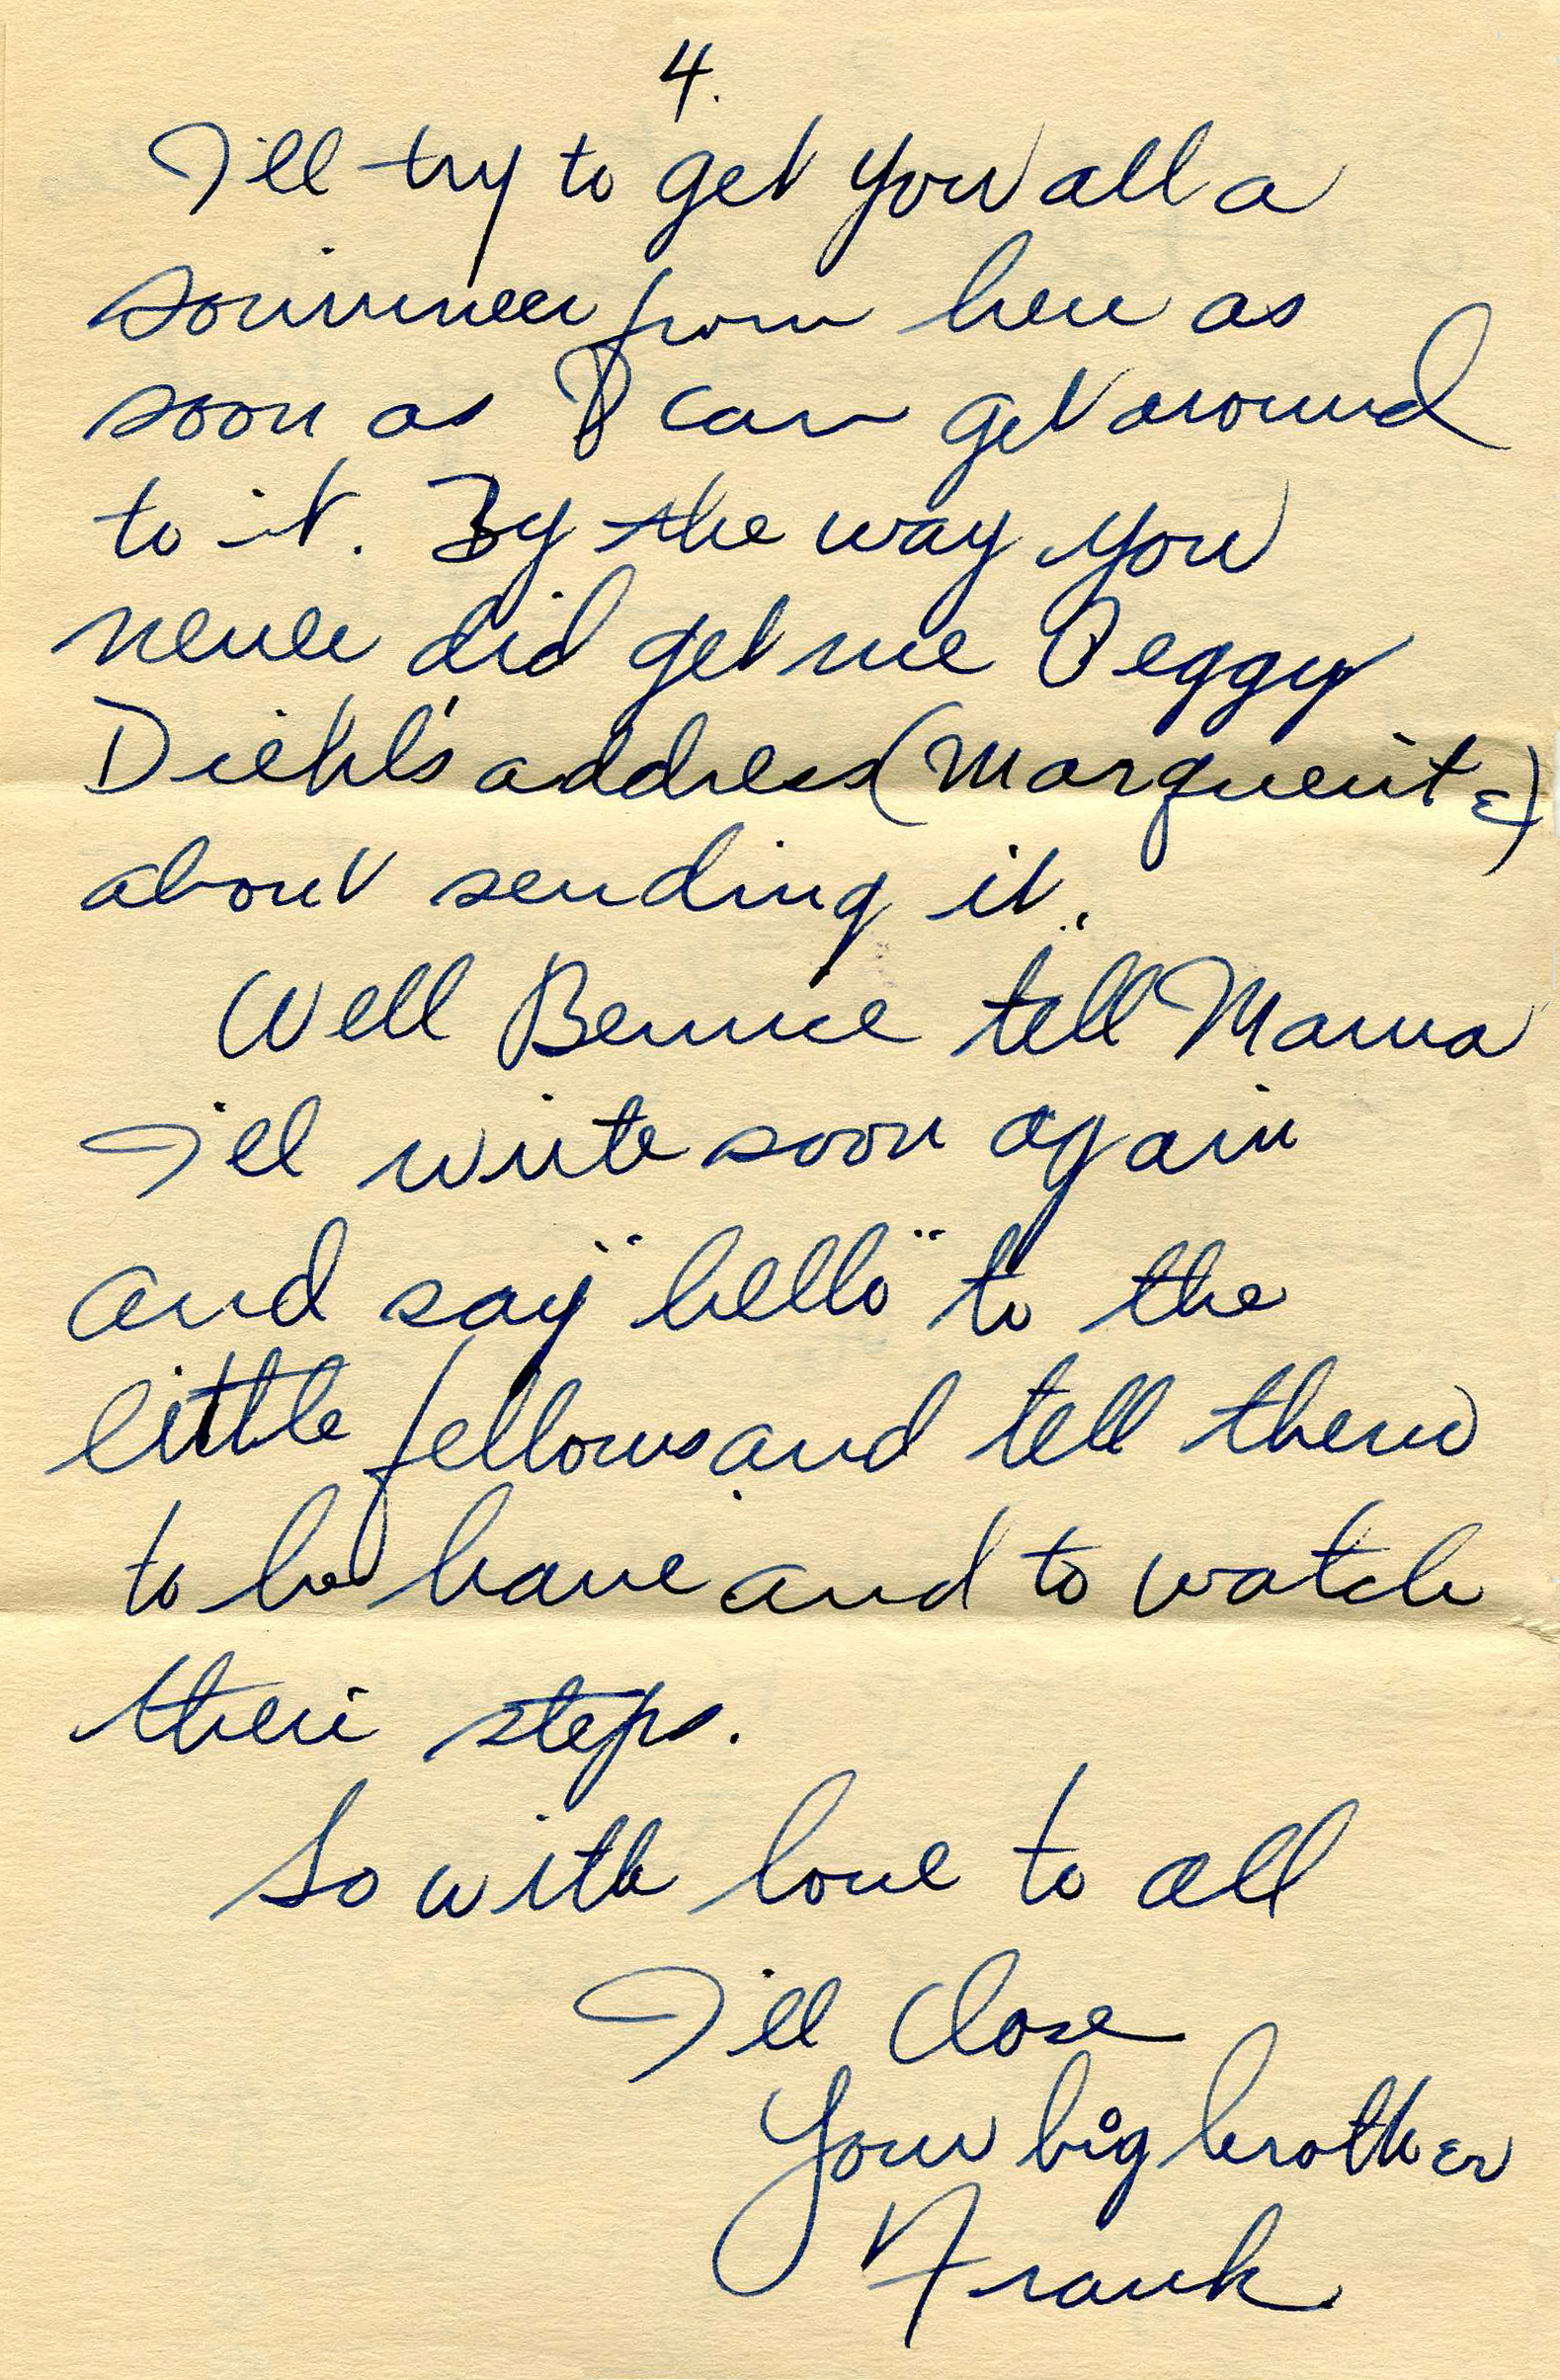 4.
I'll try to get you all a
souvineer from here as
soon as I can get around
to it. By the way you
never did get me Peggy
Diehl's address (Marguerite)
about sending it.
Well Bernice tell Mama
I'll write soon again
and say "hello" to the
little fellows and tell them
to be have and to watch
their steps.
So with love to all
I'll Close
Your big brother
Frank